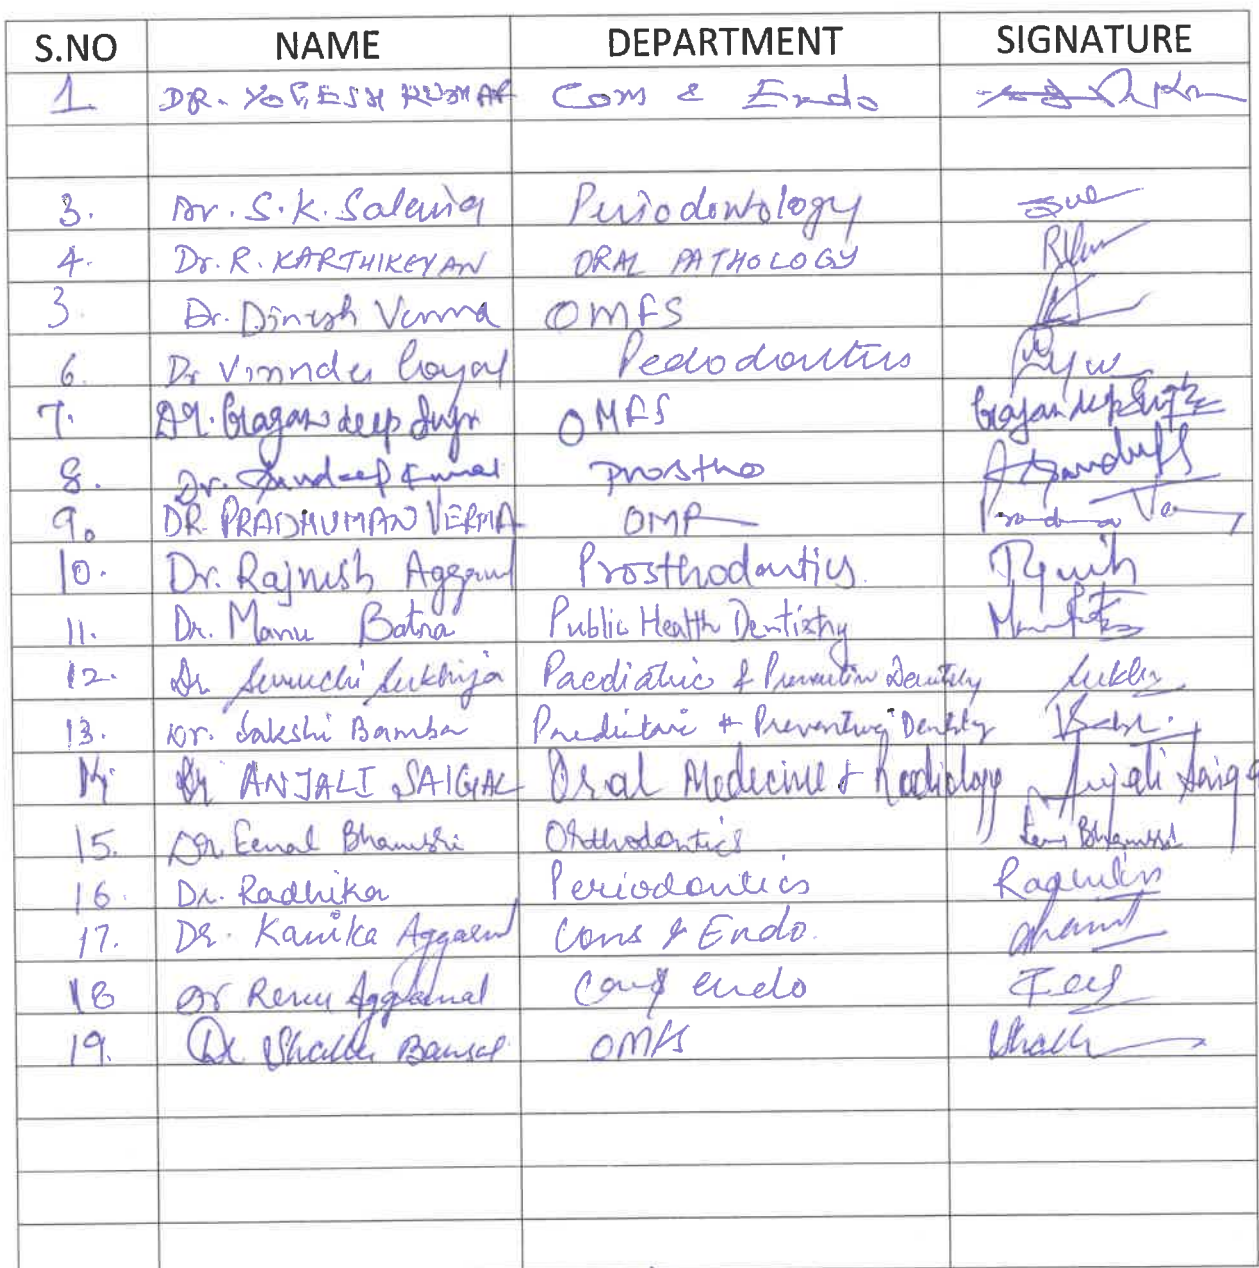 S.NO NAME DEPARTMENT SIGNATURE
1 DR. YOGESH KUMAR Cons & Endo
3. Dr. S.K. Salaria Periodontology
4. Dr. R. KARTHIKEYAN ORAL PATHOLOGY
3. Dr. Dinesh Verma OMFS
6. Dr Virinder Goyal Pedodontics
7. DR. Gagandeep Singh OMFS Gagandeep Singh
8. Dr. Sandeep Kumar Prostho
9. DR. PRADHUMAN VERMA OMR
10. Dr. Rajnish Aggarwal Prosthodontics
11. Dr. Manu Batra Public Health Dentistry
12. Dr Suruchi Sukhija Paediatric & Preventive Dentistry
13. Dr. Sakshi Bamba Paediatric & Preventive Dentistry
14. Dr ANJALI SAIGAL Oral Medicine & Radiology Anjali Saigal
15. Dr. Eenal Bhambri Orthodontics Eenal Bhambri
16. Dr. Radhika Periodontics
17. Dr. Kanika Aggarwal Cons & Endo.
18 Dr Renu Aggarwal Cons & endo
19. Dr Bansal OMFS